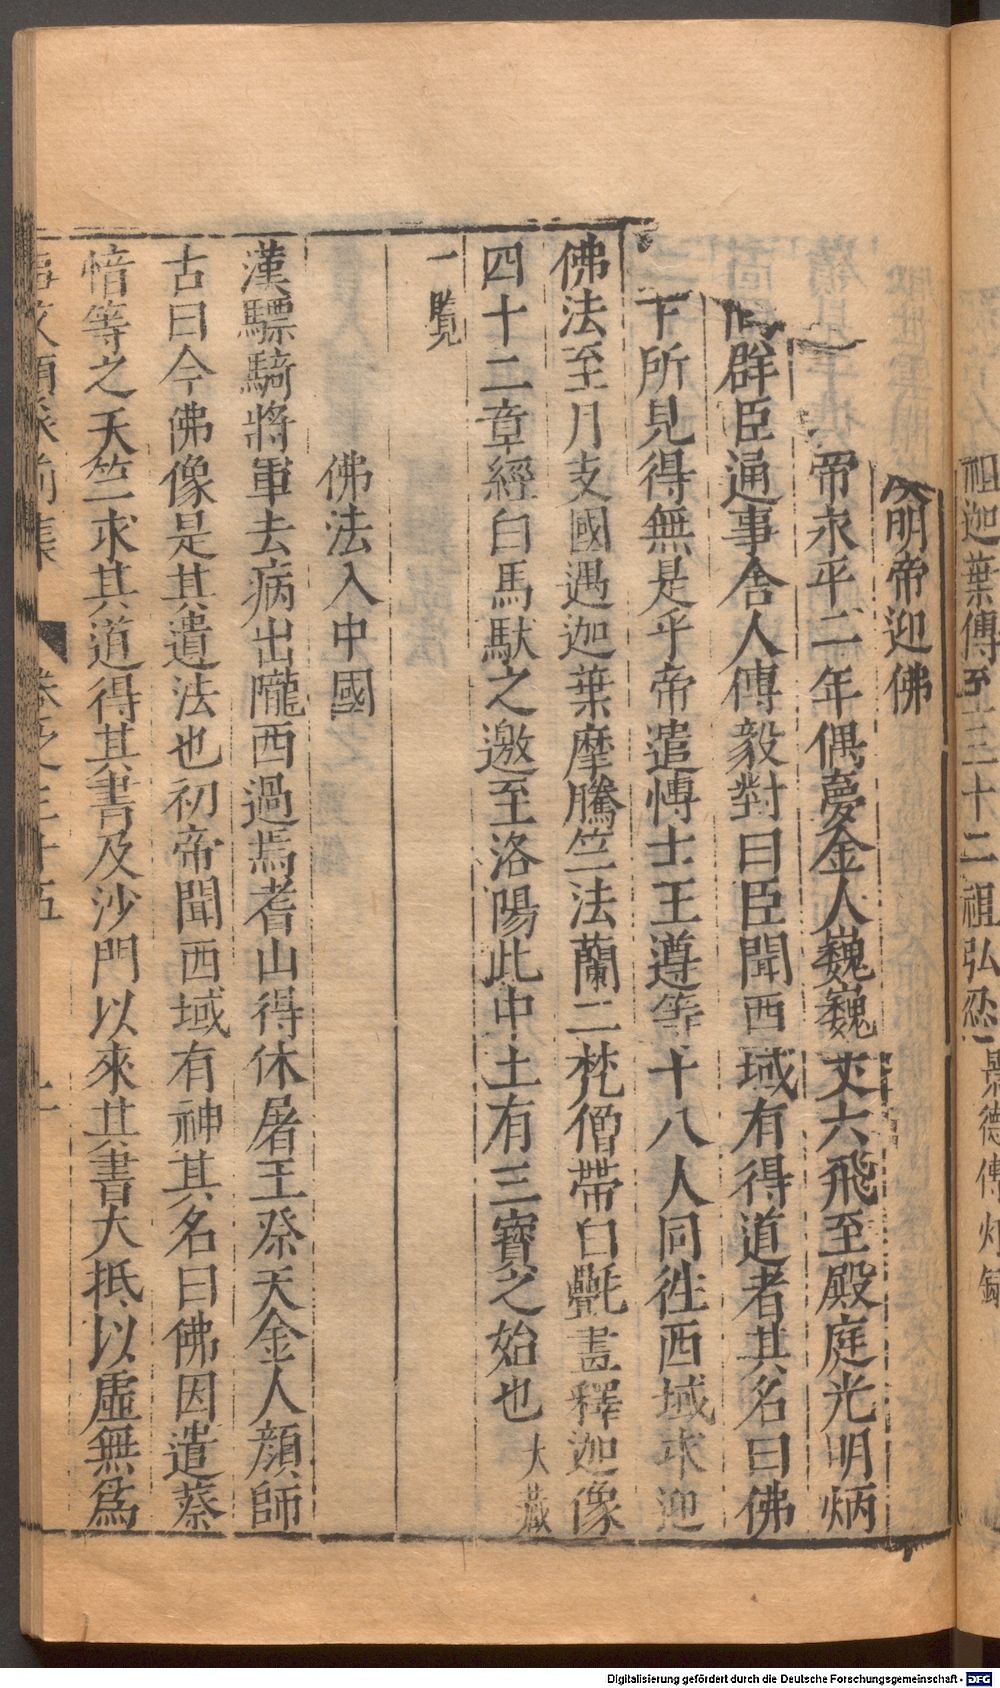 祖迦葉傳至三十二祖弘忍 景德傳燈錄
明帝迎佛
帝永平二年偶夢金人巍巍丈六飛至殿庭光明炳
群臣通事舍人傅毅對曰臣聞西域有得道者其名曰佛
下所見得無是乎帝遣博士王遵等十八人同徃西域求迎
佛法至月支國遇迦葉摩騰竺法蘭二梵僧帶白氎畫釋迦像
四十二章經白馬馱之邀至洛陽此中土有三寶之始也 大藏
一覽
佛法入中國
漢驃騎將軍去病出隴西過焉耆山得休屠王祭天金人顏師
古曰今佛像是其遺法也初帝聞西域有神其名曰佛因遣蔡
愔等之天竺求其道得其書及沙門以來其書大抵以虛無爲
事文類聚前集 卷之三十五
Digitalisierung gefördert durch die Deutsche Forschungsgemeinschaft - DFG